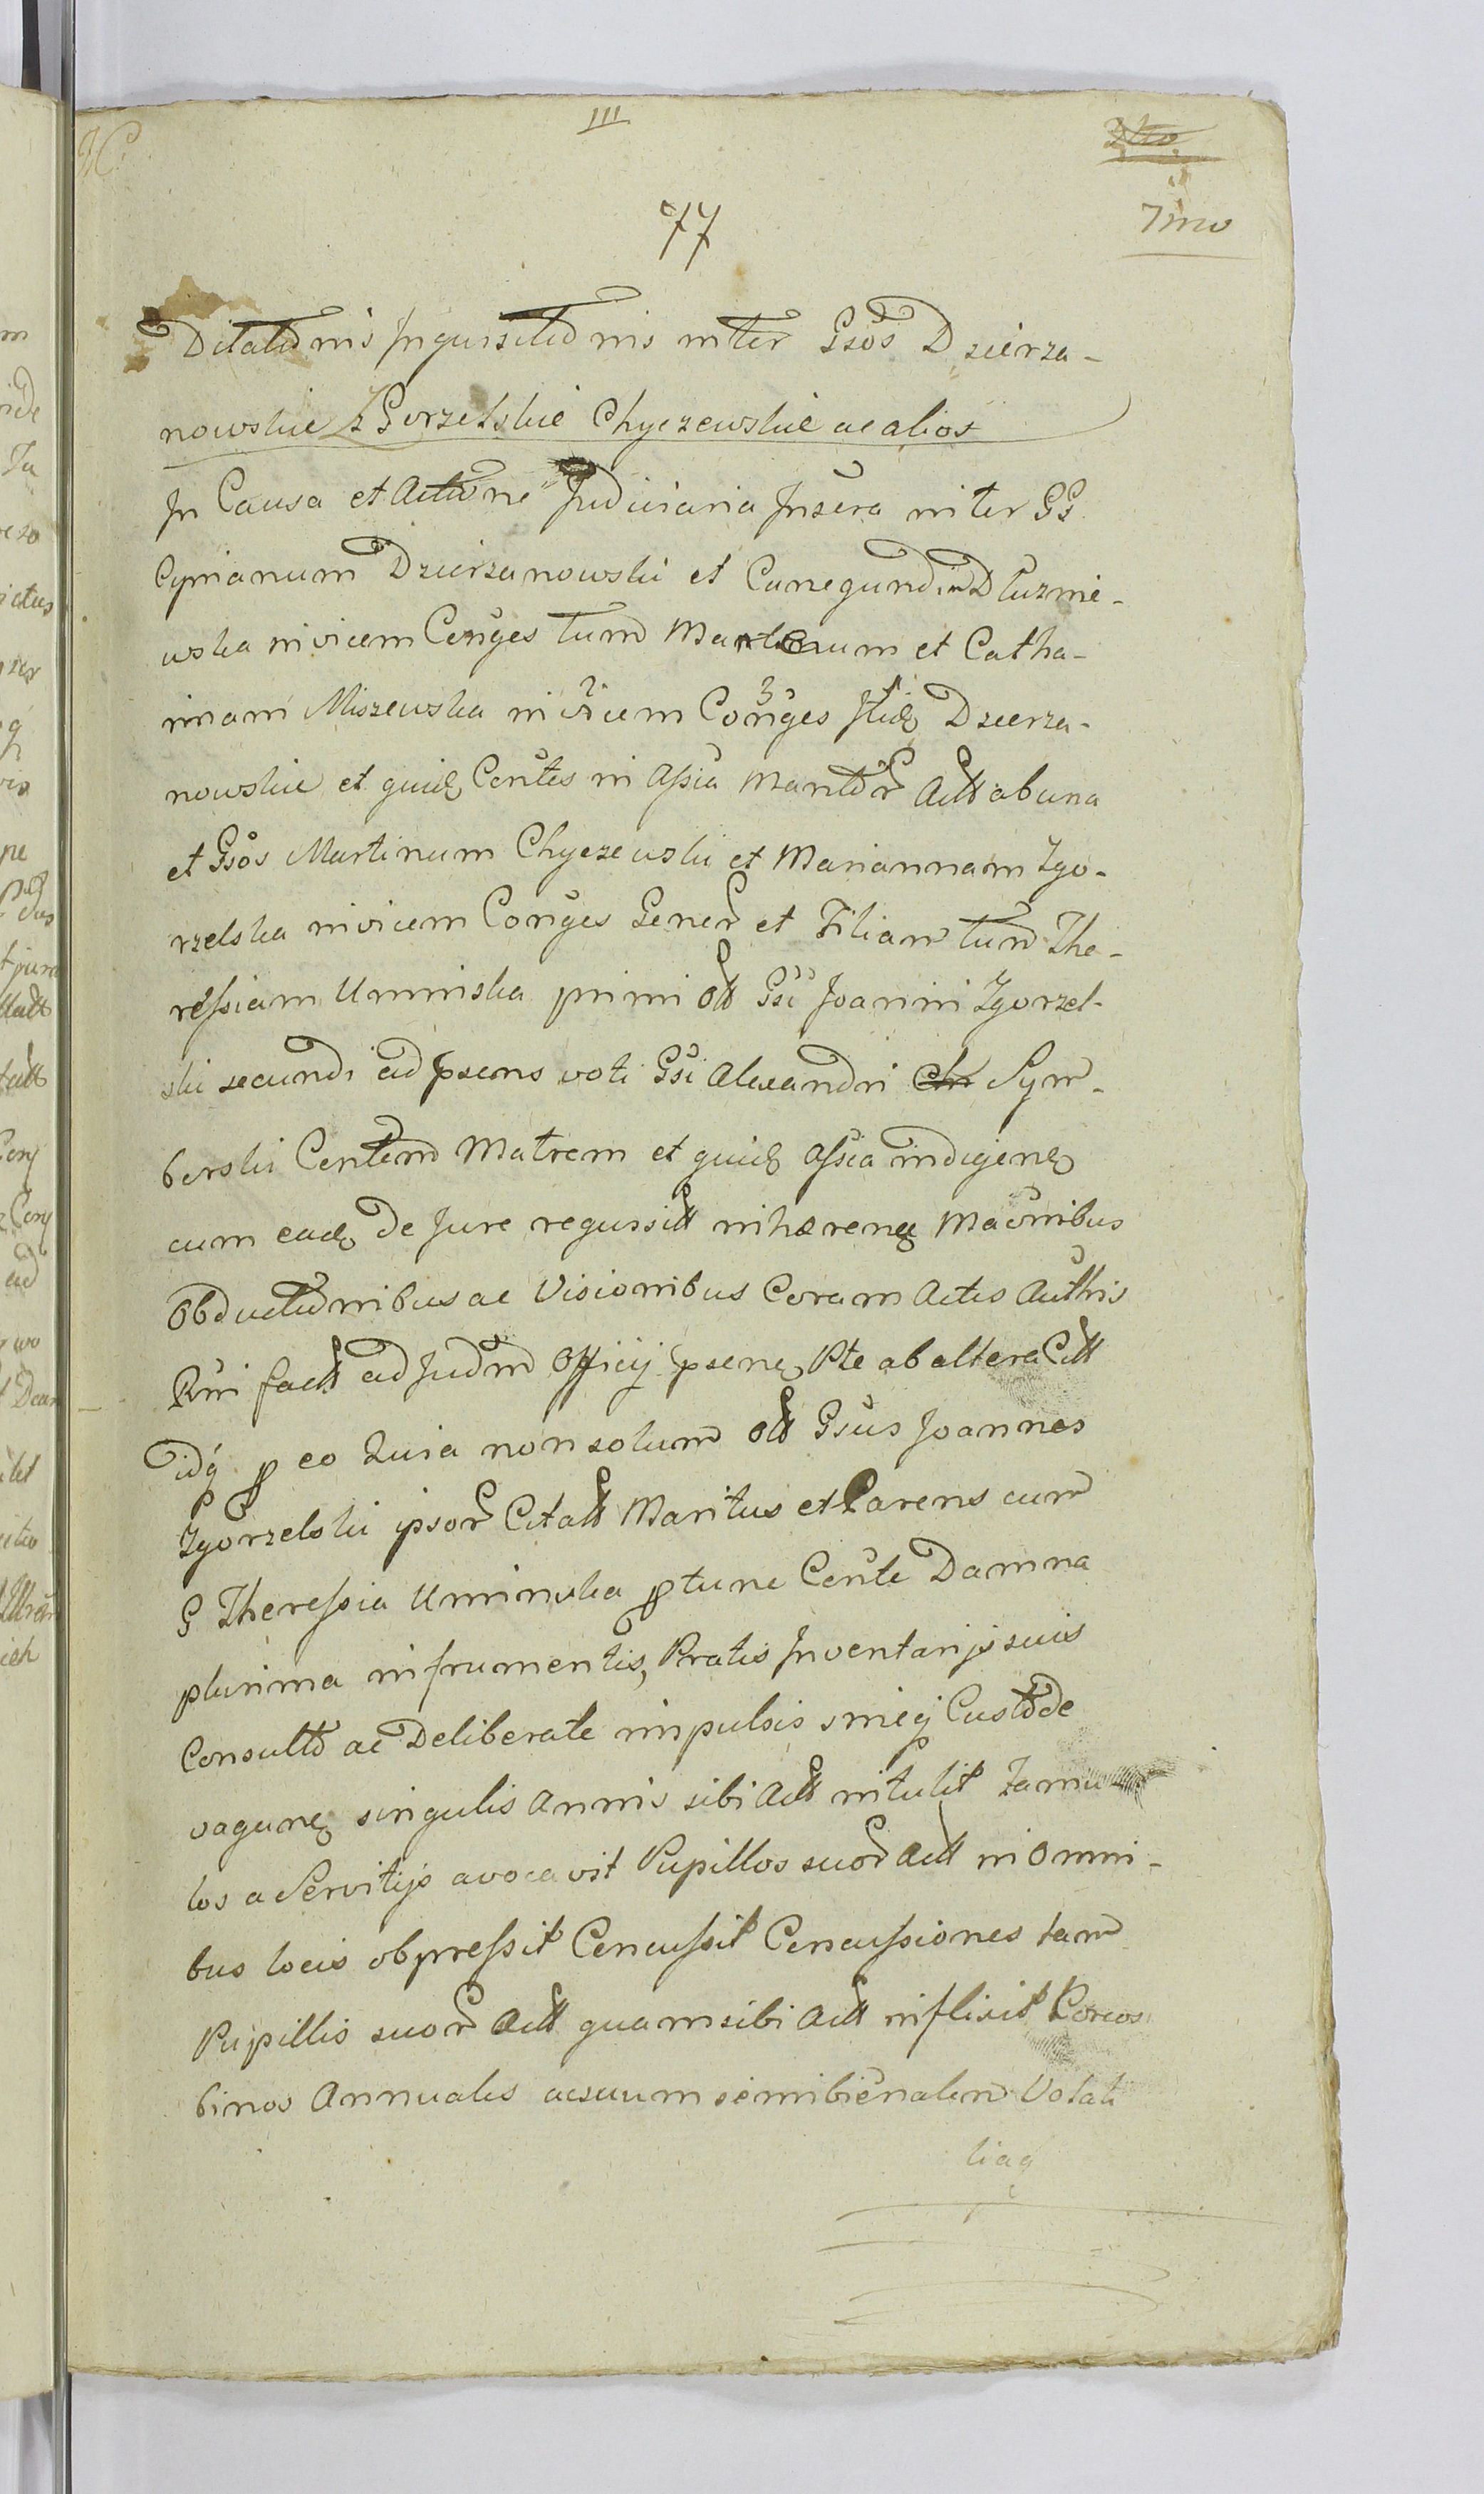 III
7mo
77
Dilationis Inquisitionis inter Gsos Dzierza-
nowskie Zgorzelskie Chyczewskie ac alios
In Causa et Actione Judiciaria Infera inter GG
Cyprianum Dzierzanowski et Cunegundim Dluznie-
wska invicem Conges tum et Catha-
rinam Miszewska invicem Conges Dzierza-
nowskie et quid Contes in Assia Mantor Actt ab una
et Gsos Martinum Chyczewski et Mariannam Zgo-
rzelska invicem Conges Gener et Filiam tum The-
ressiam Uminska primi Ott Gsi Joanini Zgorzel-
ski secundi ad psens voti Gsi Alexandri Sym-
berski Contem Matrem et quid Assia indigen
cum ead de Jure requisitt inhaeren Maonibus
Obductionibus ac Visionibus Coram Actis Authis
Rni factt ad Judm Officij psen Pte ab altera Citt
idq p eo Quia non solum Ott Gsus Joannes
Zgorzelski ipsor Citatt Maritus et Parens cum
G Theressia Uminska ptunc Conte Damna
plurima in frumentis, Pratis Inventarijs suis
Consulto ac Deliberate impulsis sineq Custode
vagan singulis Annis sibi Actt intulit Famu-
los a Servitijs avocavit Pupillos suor Actt in Omni-
bus locis obpressit Concussit Concussiones tam
Pupillis suor Actt quam sibi Actt inflixit Porcos
binos Annuales ac suum semibienalem Volati
liaq